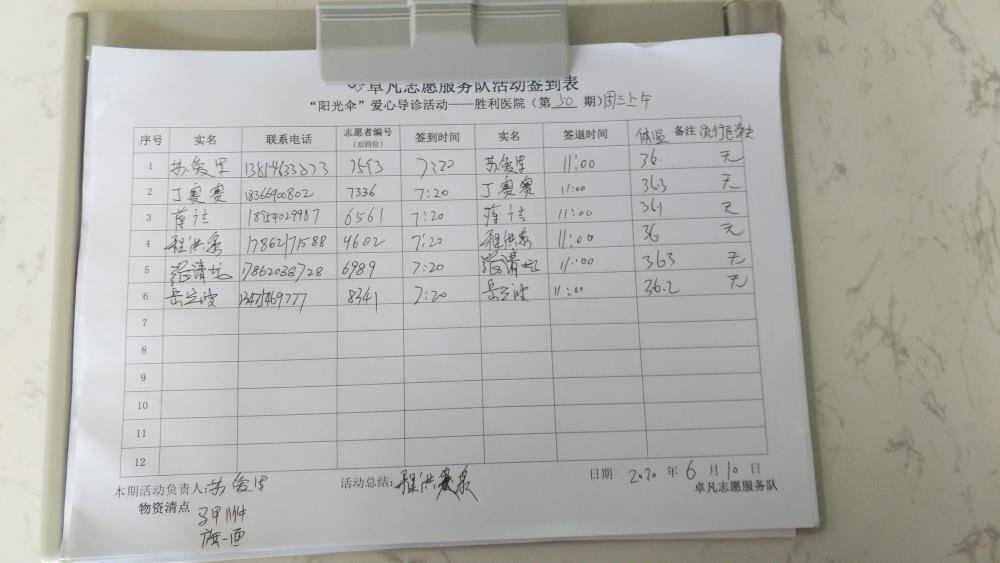 卓凡志愿服务队活动签到表
“阳光伞”爱心导诊活动——胜利医院(第 50 期)周三上午
序号 实名 联系电话 志愿者编号(后四位) 签到时间 实名 签退时间 体温 备注 流行病学史
1 苏爱里 7593 7:20 苏爱里 11:00 36. 无
2 丁赛赛 18366900802 7336 7:20 丁赛赛 11:00 363 无
3 薛 18954029987 6561 7:20 薛 11:00 36.1 无
4 程洪泉 17862171588 4602 7:20 程洪泉 11:00 36 无
5 张清 17862038728 6989 7:20 张清 11:00 363 无
6 岳立波 8341 7:20 岳立波 11:00 36.2 无
7
8
9
10
11
12
本期活动负责人:苏爱里 活动总结:程洪泉 日期 2020 年 6 月 10 日
物资清点 卓凡志愿服务队
马甲 件
旗一面